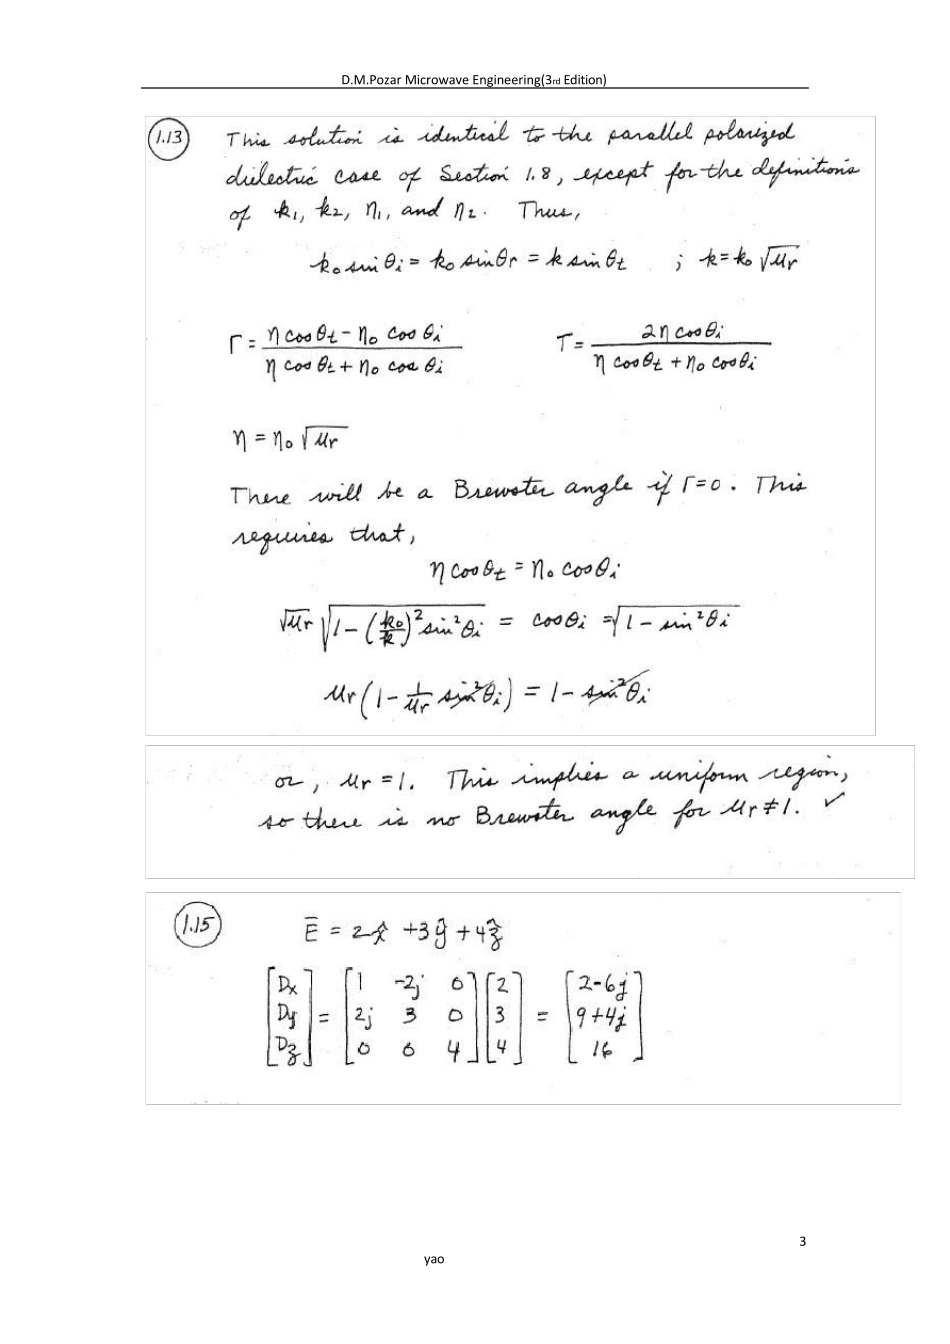 D.M.Pozar Microwave Engineering(3rd Edition)
1.13 This solution is identical to the parallel polarized
dielectric case of Section 1.8, except for the definitions
of k₁, k₂, η₁, and η₂. Thus,
k₀ sin θᵢ = k₀ sin θr = k sin θt ; k = k₀ √μr
Γ = (η cos θt − η₀ cos θᵢ) / (η cos θt + η₀ cos θᵢ) T = 2η cos θᵢ / (η cos θt + η₀ cos θᵢ)
η = η₀ √μr
There will be a Brewster angle if Γ=0. This
requires that,
η cos θt = η₀ cos θᵢ
√μr √(1 − (k₀/k)² sin²θᵢ) = cos θᵢ = √(1 − sin²θᵢ)
μr (1 − 1/μr sin²θᵢ) = 1 − sin²θᵢ
or, μr = 1. This implies a uniform region,
so there is no Brewster angle for μr ≠ 1. ✓
1.15 Ē = 2x̂ + 3ŷ + 4ẑ
[Dx] [1 -2j 0] [2] [2-6j]
[Dy] = [2j 3 0] [3] = [9+4j]
[Dz] [0 0 4] [4] [16]
3
yao